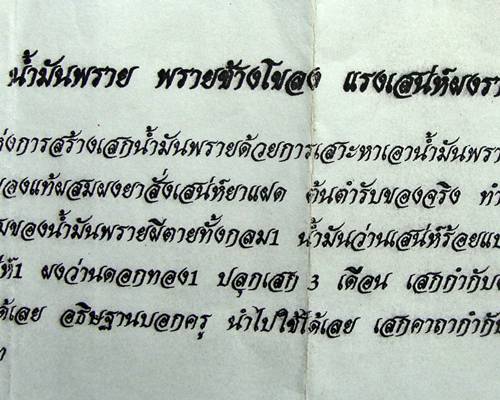 น้ำมันพราย พรายช้างโขลง แรงเสน่ห์ผงรา
งการสร้างเสกน้ำมันพรายด้วยการเสาะหาเอาน้ำมันพรา
ของแท้ผสมผงยาสั่งเสน่ห์ยาแฝด ต้นตำรับของจริง ทำ
มของน้ำมันพรายผีตายทั้งกลม1 น้ำมันว่านเสน่ห์ร้อยแป
ห์1 ผงว่านดอกทอง1 ปลุกเสก 3 เดือน เสกกำกับ
ด้เลย อธิษฐานบอกครู นำไปใช้ได้เลย เสกคาถากำกับ